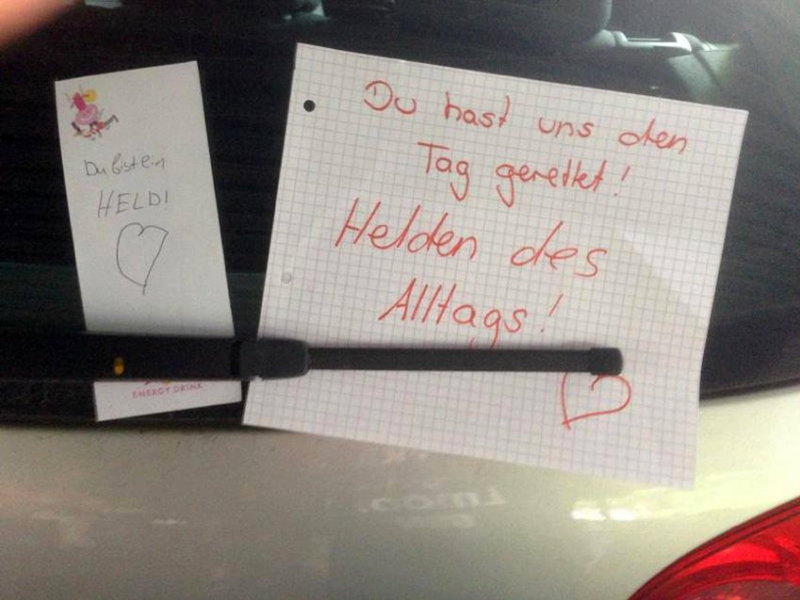 Du bist ein
HELD!
ENERGY DRINK
Du hast uns den
Tag gerettet!
Helden des
Alltags!